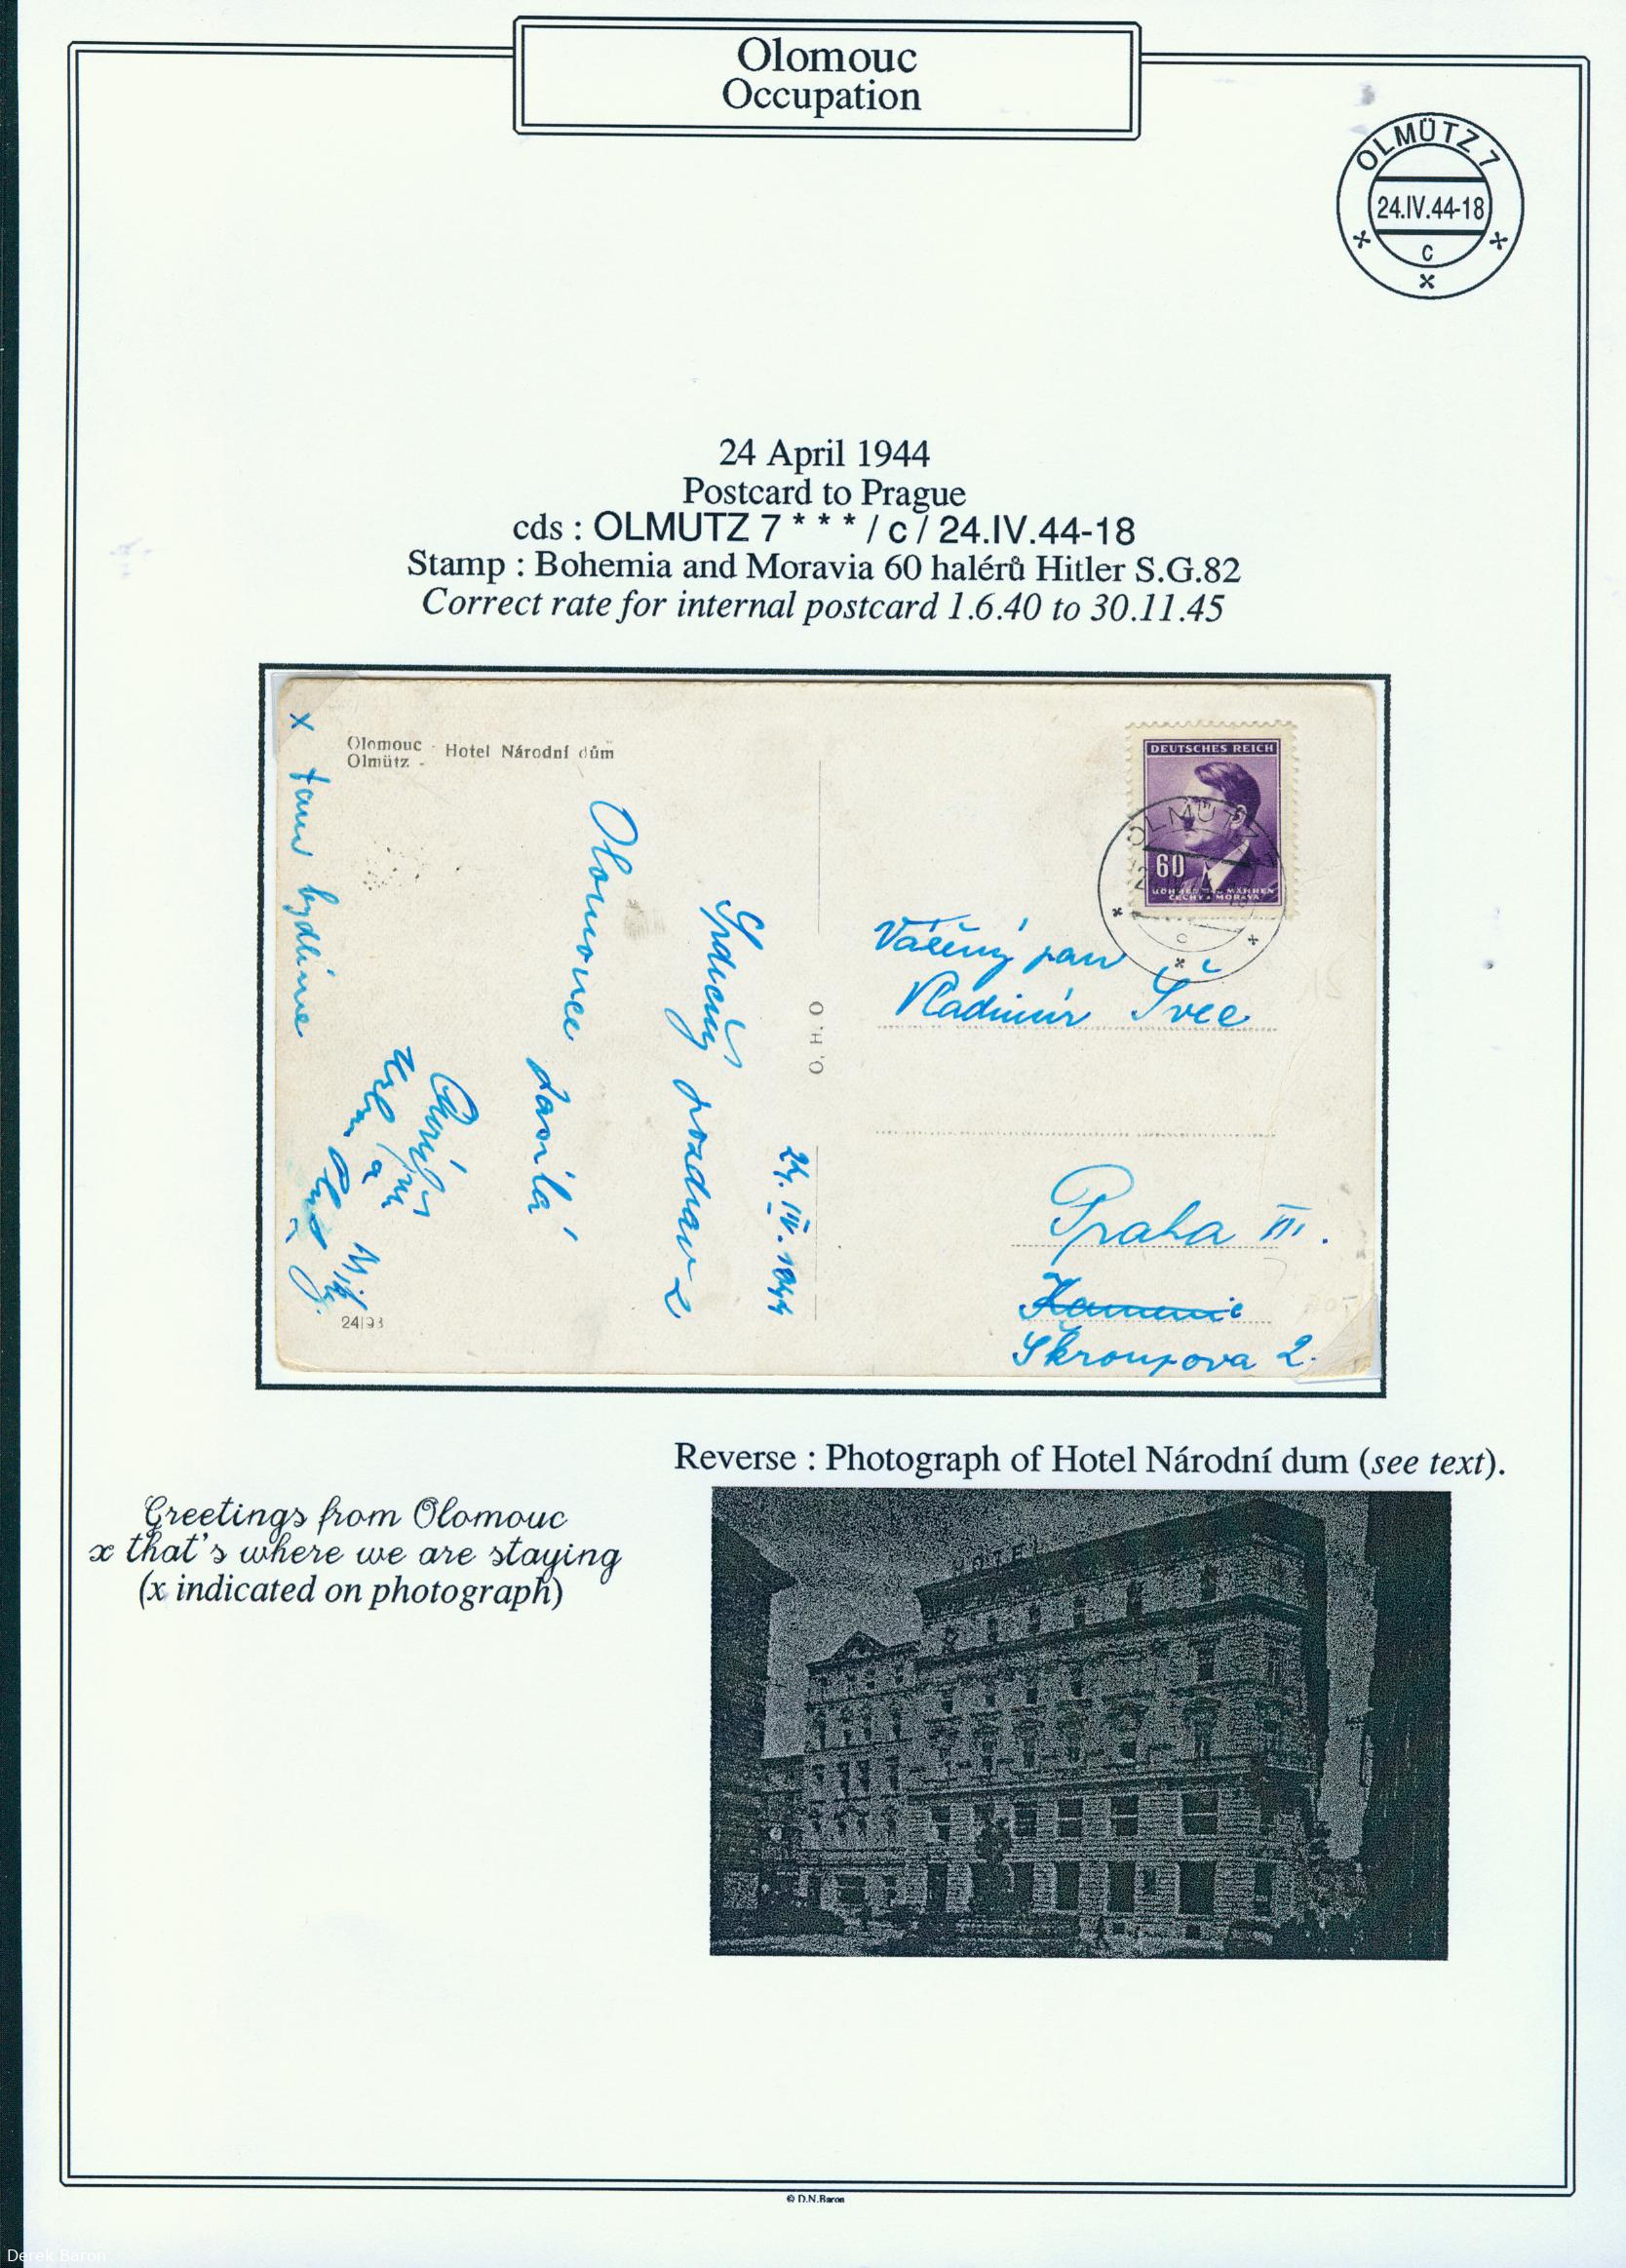 Olomouc
Occupation
OLMÜTZ 7
24.IV.44-18
c
24 April 1944
Postcard to Prague
cds : OLMUTZ 7 * * * / c / 24.IV.44-18
Stamp : Bohemia and Moravia 60 halérů Hitler S.G.82
Correct rate for internal postcard 1.6.40 to 30.11.45
Olomouc - Hotel Národní dům
Olmütz -
x tam bydlíme
24. IV. 1944
Srdečný pozdrav z
Olomouce
a
24193
O. H. O
DEUTSCHES REICH
60
BÖHMEN UND MÄHREN
ČECHY A MORAVA
OLMÜTZ
c
Vážený pan
Vladimír Švec
Praha III.
Škroupova 2.
Reverse : Photograph of Hotel Národní dum (see text).
Greetings from Olomouc
x that's where we are staying
(x indicated on photograph)
HOTEL
© D.N.Baron
Derek Baron